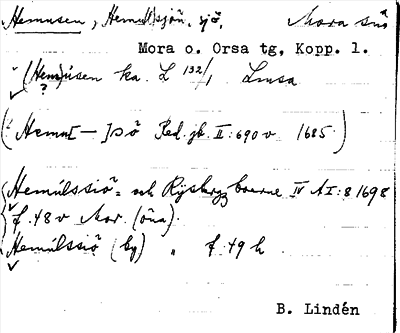 Hemusen, Hemulsjön, sjö, Mora sn
Mora o. Orsa tg, Kopp. l.
(Hem)úsen ka. L 132/1 Lmsa
?
(Hemu[—]sö Red. jb. II:690 v 1685)
Hemúlssiö= och Rijsbrys boerne IV AI:8 1698
f. 48 v Mor. (öna).
Hemúlssiö (by) " f. 49 h
B. Lindén